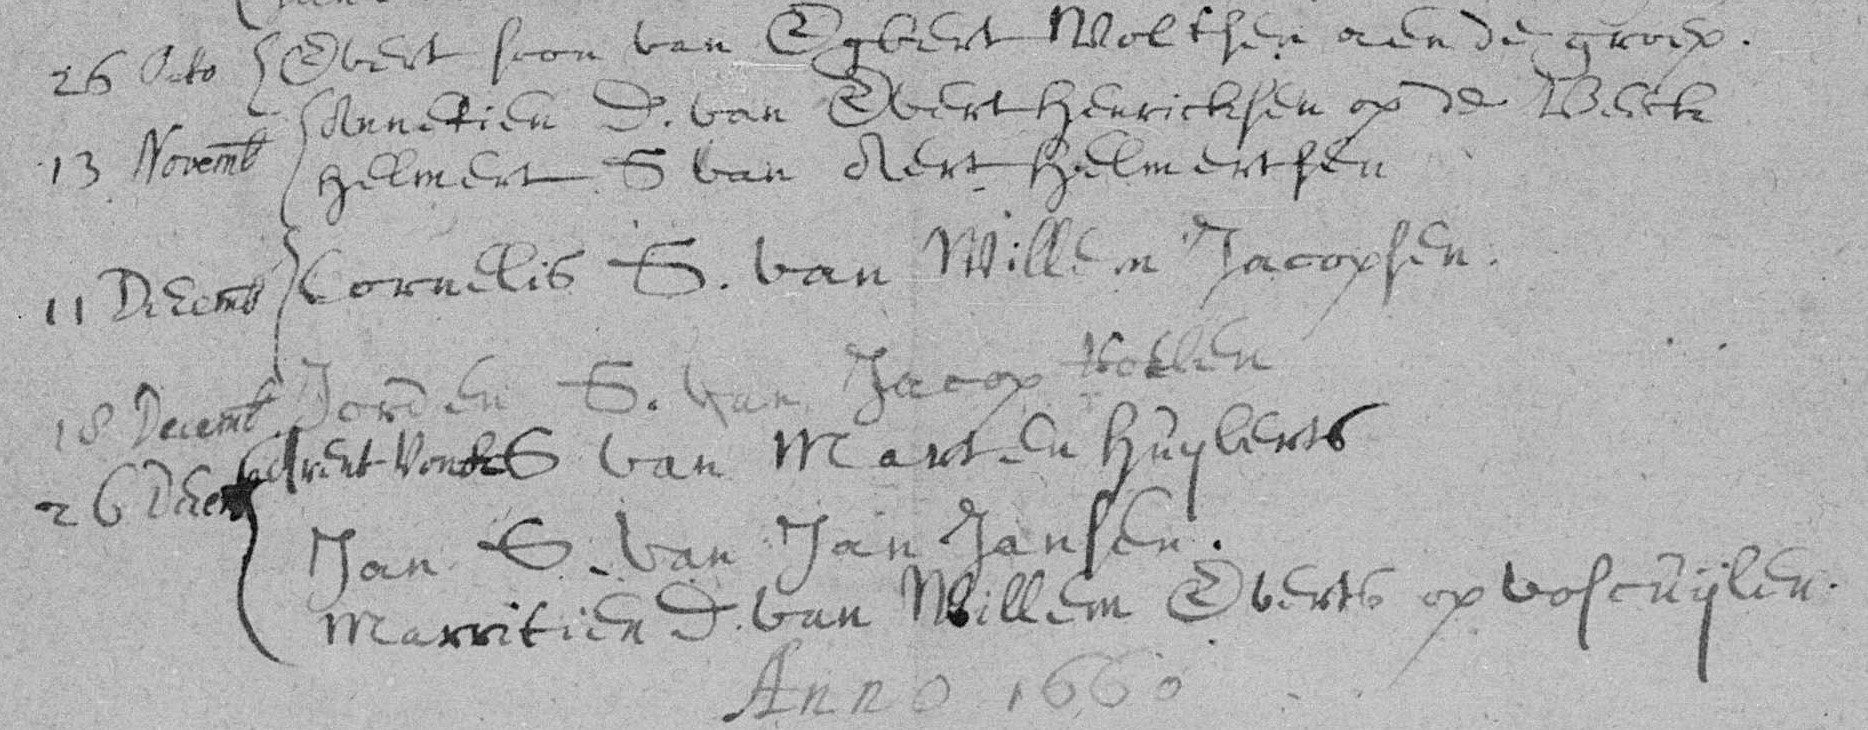 26 Octo Evert soon van Egbert Woltsen aen de groep.
13 Novemb Annetien D. van Evert Henricksen op de Beeck
Helmert S van Aert Helmertsen
11 Decemb Cornelis S. van Willem Jacopsen.
18 Decemb Jorden S. van Jacop
26 Decem S van Marten Huijberts
Jan S. van Jan Jansen.
Marritien D. van Willem Everts op voscuijlen.
Anno 1660